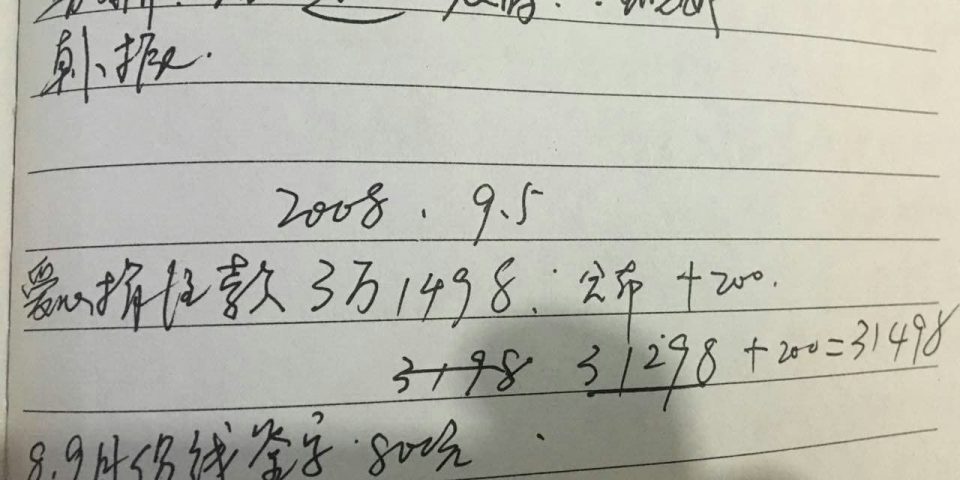 2008.9.5
爱心捐赠款3万1498. 公布+200.
3198 31298+200=31498
8.9月份线签字.800元